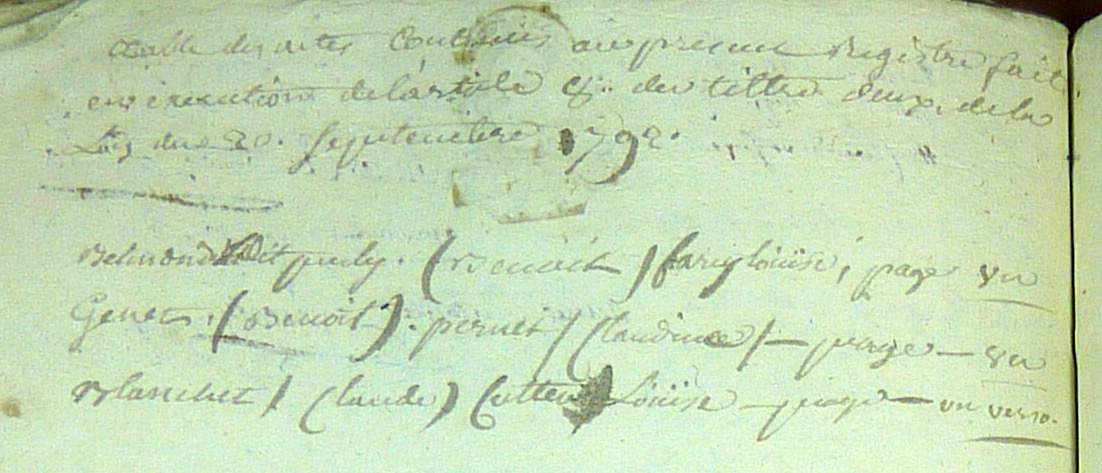 table des actes Contenus au present Registre fait
en execution de l'article 8.. du tittre deux, de la
Loy du 20. Septembre 1792.
Belmond dit puly. (Benoit) fary loüise, page un
Genet. (Benoit). pernet / (Claudine) / — page — un
Blanchet / (laude) Louise — page — un verso.